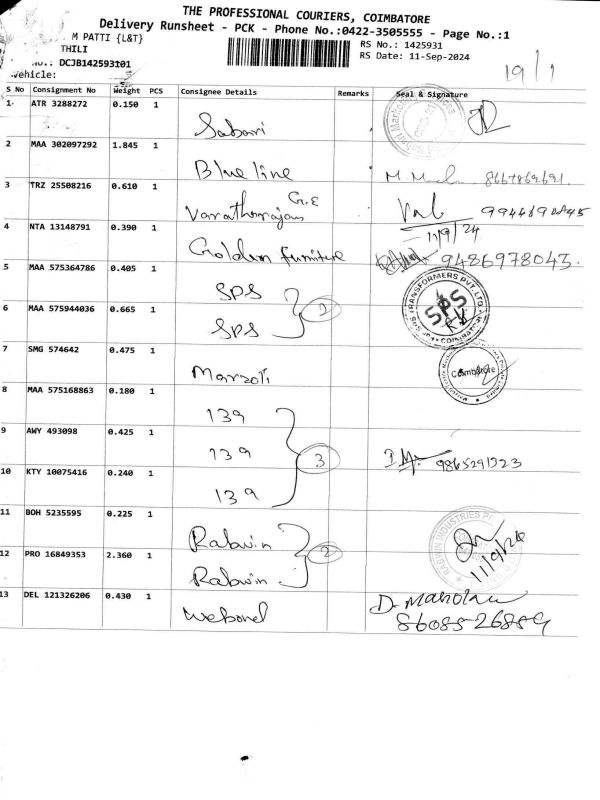 THE PROFESSIONAL COURIERS, COIMBATORE
Delivery Runsheet - PCK - Phone No.:0422-3505555 - Page No.:1
M PATTI {L&T}
THILI
DCJB142593101
Vehicle:
RS No.: 1425931
RS Date: 11-Sep-2024
19/1
S No Consignment No Weight PCS Consignee Details Remarks Seal & Signature
1 ATR 3288272 0.150 1 Sabari
2 MAA 302097292 1.845 1 Blue line
3 TRZ 25508216 0.610 1 Varatharajan G.E
11/9/24
4 NTA 13148791 0.390 1 Golden furniture 9486978045.
5 MAA 575364786 0.405 1 SPS
6 MAA 575944036 0.665 1 SPS 2
TRANSFORMERS PVT. LTD.
SPS
COIMBATORE
7 SMG 574642 0.475 1
Coimbatore
8 MAA 575168863 0.180 1 139
9 AWY 493098 0.425 1 139 3
10 KTY 10075416 0.240 1 139
11 BOH 5235595 0.225 1 Rabwin
INDUSTRIES
11/9/24
12 PRO 16849353 2.360 1 Rabwin 2
13 DEL 121326206 0.430 1
8608526889